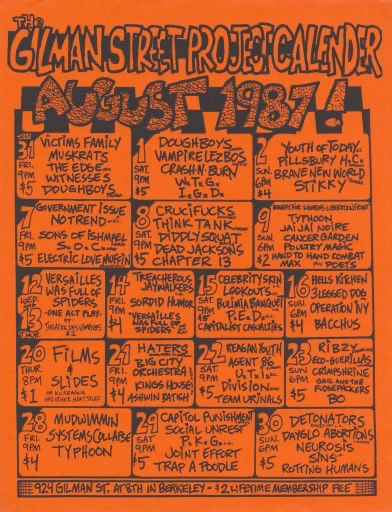 THE
GILMAN STREET PROJECT CALENDER
AUGUST 1987!
31
FRI.
9PM
$5
VICTIMS FAMILY
MUSKRATS
THE EDGE
WITNESSES
DOUGHBOYS
1
SAT.
9PM
$5
DOUGHBOYS
VAMPIRE LEZBOS
CRASH-N-BURN
2
SUN.
6PM
$4
YOUTH OF TODAY
PILLSBURY H.C.
BRAVE NEW WORLD
STIKKY
7
FRI.
9PM
$5
GOVERNMENT ISSUE
NO TREND
SONS OF ISHMAEL
S.O.C.
ELECTRIC LOVE MUFFIN
8
SAT.
9PM
$5
CRUCIFUCKS
THINK TANK
DIDDLY SQUAT
DEAD JACKSONS
CHAPTER 13
9
SUN.
6PM
$2
TYPHOON
JAI JAI NOIRE
CANCER GARDEN
POULTRY MAGIC
HAND TO HAND COMBAT
MAX POETS
12
WED.
AND
13
THUR.
VERSAILLES
WAS FULL OF
SPIDERS
-ONE ACT PLAY-
BY
$2
14
FRI.
9PM
$4
TREACHEROUS
JAYWALKERS
SORDID HUMOR
"VERSAILLES
WAS FULL OF
SPIDERS"
15
SAT.
9PM
$5
CELEBRITY SKIN
LOOKOUTS
BULIMIA BANQUET
CAPITALIST CASUALTIES
16
SUN.
6PM
$4
HELLS KITCHEN
3 LEGGED DOG
OPERATION IVY
BACCHUS
20
THUR
8PM
$1
FILMS
SLIDES
ON NICARAGUA
AND OTHER NEAT STUFF
21
FRI.
9PM
$4
HATERS
BIG CITY
ORCHESTRA
KINGS HOUSE
ASHWIN BATISH
22
SAT.
9PM
$5
REAGAN YOUTH
AGENT 86
DIVISION
TEAM URINALS
23
SUN.
6PM
$4
RIBZY
ECO-GUERILLAS
CRIMPSHRINE
GAIL AND THE
FUDGEPACKERS
BO
28
FRI.
9PM
$4
MUDWIMMIN
SYSTEMS COLLAPSE
TYPHOON
29
SAT
9PM
$5
CAPITOL PUNISHMENT
SOCIAL UNREST
JOINT EFFORT
TRAP A POODLE
30
SUN.
6PM
$5
DETONATORS
DAYGLO ABORTIONS
NEUROSIS
SINS
ROTTING HUMANS
924 GILMAN ST. AT 8TH IN BERKELEY - $2 LIFETIME MEMBERSHIP FEE